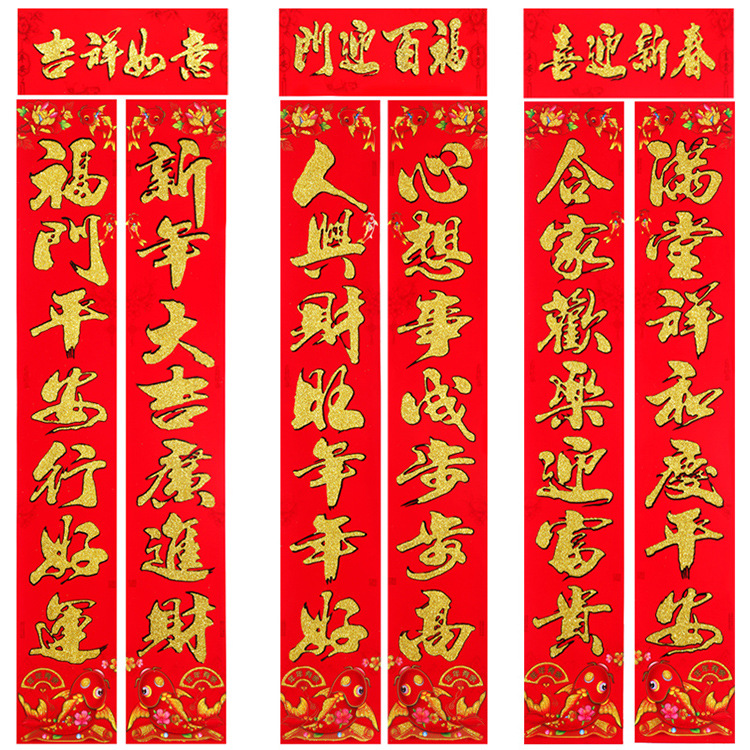 吉祥如意
福門平安行好運
新年大吉廣進財
門迎百福
人興財旺年年好
心想事成步步高
喜迎新春
合家歡樂迎富貴
满堂祥和慶平安